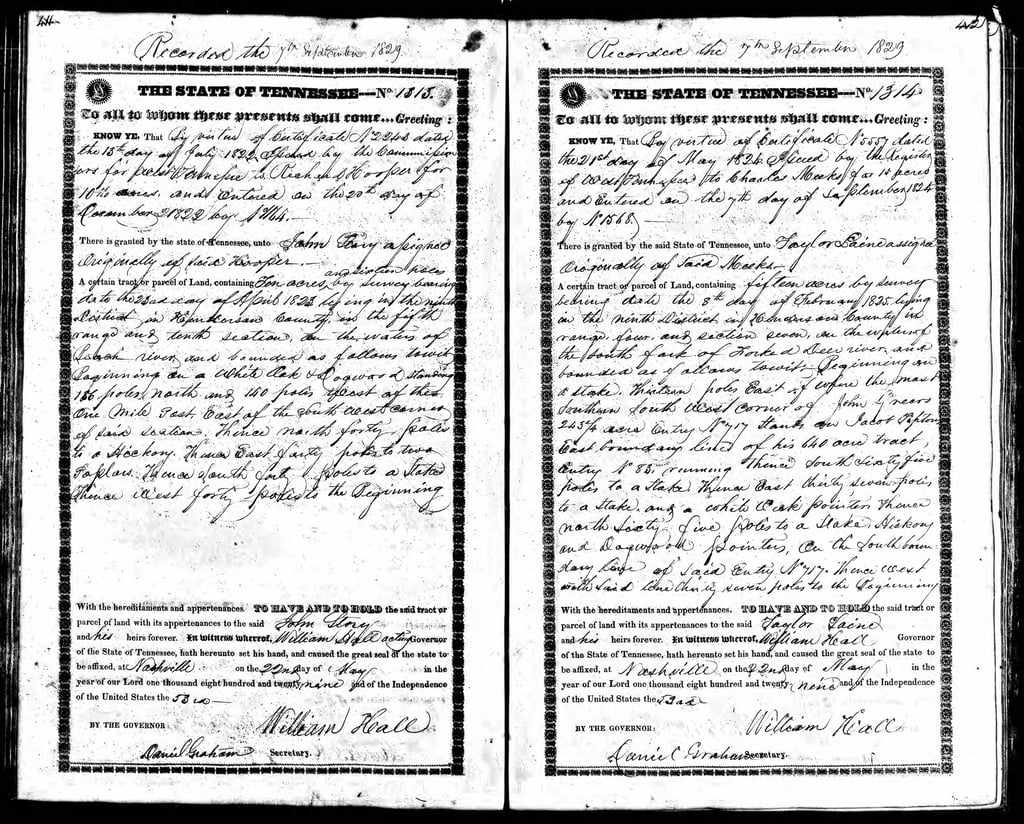 41
Recorded the 7th September 1829
THE STATE OF TENNESSEE—No. 1313.
To all to whom these presents shall come...Greeting:
KNOW YE, That By virtue of Certificate No 2248 dated
the 15th day of July 1822 Issued by the Commission
ers for West Tennessee to Richard Hooper for
10 acres and Entered on the 20th day of
December 1822 by No
There is granted by the state of Tennessee, unto John assignee
Originally of said Hooper.—
A certain tract or parcel of Land, containing Ten acres, by survey bearing
date the 23rd day of April 1823 lying in the ninth
District in Henderson County, in the fifth
range and tenth section, on the waters of
Beech river and bounded as follows towit
Beginning on a White Oak & Dogwood standing
156 poles north and 140 poles West of the
One Mile East of the South West corner
of said section. Thence north forty poles
to a Hickory. Thence East forty poles to two
Poplars. Thence South forty poles to a Stake
Thence West forty poles to the Beginning
With the hereditaments and appertenances. TO HAVE AND TO HOLD the said tract or
parcel of land with its appertenances to the said John
and his heirs forever. In witness whereof, William Hall acting Governor
of the State of Tennessee, hath hereunto set his hand, and caused the great seal of the state to
be affixed, at Nashville on the 22nd day of May in the
year of our Lord one thousand eight hundred and twenty nine and of the Independence
of the United States the 53rd —
BY THE GOVERNOR: William Hall
Daniel Graham Secretary.
42
Recorded the 7th September 1829
THE STATE OF TENNESSEE—No. 1314
To all to whom these presents shall come...Greeting:
KNOW YE, That By virtue of Certificate No 5557 dated
the 21st day of May 1824 Issued by the Register
of West Tennessee to Charles Meeks for 15 acres
and Entered on the 7th day of September 1824
by No 1568.—
There is granted by the said State of Tennessee, unto Taylor Laine assignee
Originally of said Meeks—
A certain tract or parcel of Land, containing fifteen acres by survey
bearing date the 8th day of February 1825 lying
in the ninth District in Henderson County in
range four and section seven, on the waters of
the South fork of Forked Deer river and
bounded as follows towit. Beginning on
a stake. Thirteen poles East of where the most
Southern South West corner of John Greers
245¾ acre Entry No 717 Stands on Jacob
East boundary line of his 640 acre tract,
Entry No 83. running Thence South Sixty five
poles to a Stake. Thence East thirty seven poles
to a Stake and a white Oak pointers Thence
north Sixty five poles to a Stake, Hickory
and Dogwood pointers, On the South boun-
dary line of Said Entry No 717. Thence West
with Said line thirty seven poles to the Beginning
With the hereditaments and appertenances. TO HAVE AND TO HOLD the said tract or
parcel of land with its appertenances to the said Taylor Laine
and his heirs forever. In witness whereof, William Hall Governor
of the State of Tennessee, hath hereunto set his hand, and caused the great seal of the state to
be affixed, at Nashville on the 22nd day of May in the
year of our Lord one thousand eight hundred and twenty nine and of the Independence
of the United States the 53rd
BY THE GOVERNOR: William Hall
Daniel Graham Secretary.